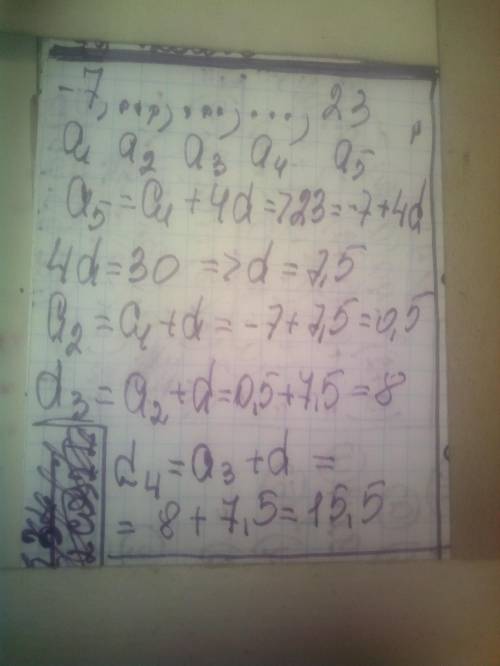 -7, ..., ..., ..., 23
a₁ a₂ a₃ a₄ a₅
a₅ = a₁ + 4d => 23 = -7 + 4d
4d = 30 => d = 7,5
a₂ = a₁ + d = -7 + 7,5 = 0,5
a₃ = a₂ + d = 0,5 + 7,5 = 8
a₄ = a₃ + d =
= 8 + 7,5 = 15,5